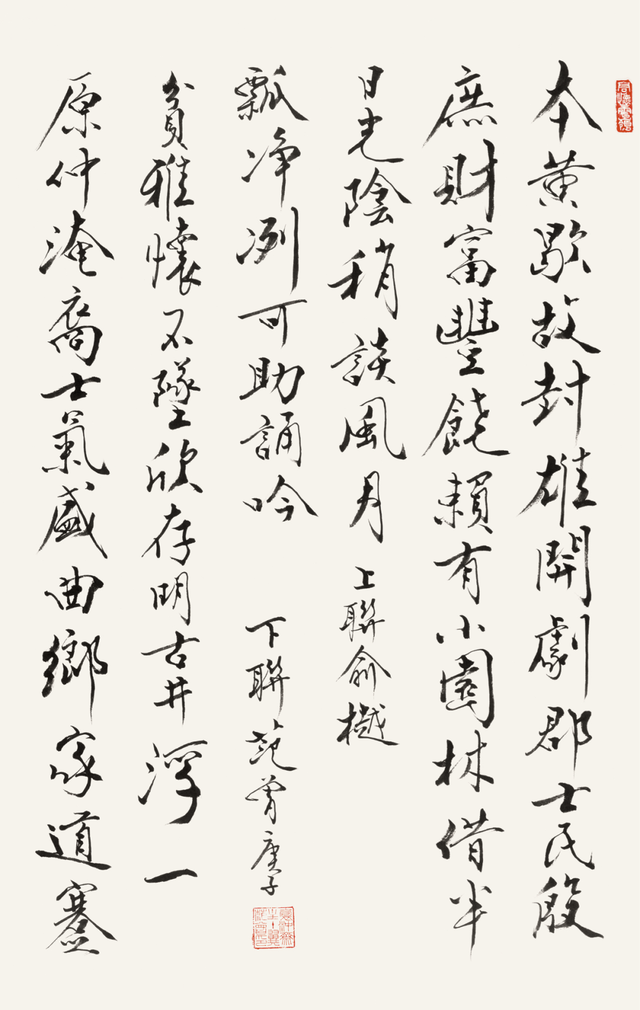 本黃歇故封雄開劇郡士民殷
庶財富豐饒賴有小園林借半
日光陰稍談風月 上聯俞樾
原仲淹裔士氣盛曲鄉家道蹇
貧雅懷不墜欣存明古井浮一
瓢净冽可助誦吟 下聯范曾庚子